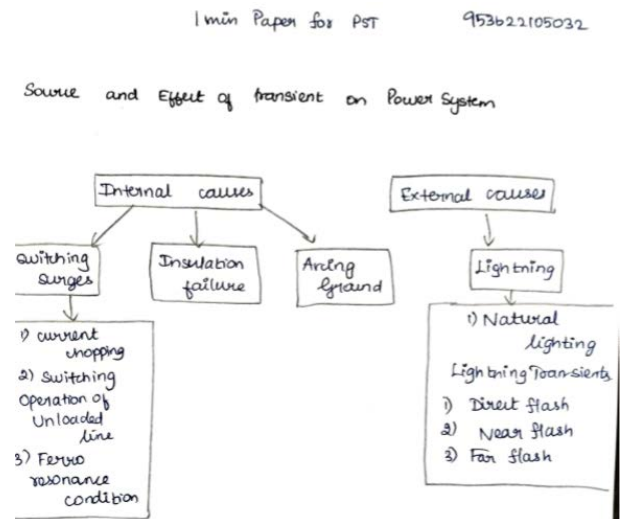 1 min Paper for PST 953622105032
Source and Effect of transient on Power System
Internal causes
External causes
Switching
surges
Insulation
failure
Arcing
Ground
Lightning
1) current
chopping
2) Switching
Operation of
Unloaded
line
3) Ferro
resonance
condition
1) Natural
lighting
Lightning Transients
1) Direct flash
2) Near flash
3) Far flash